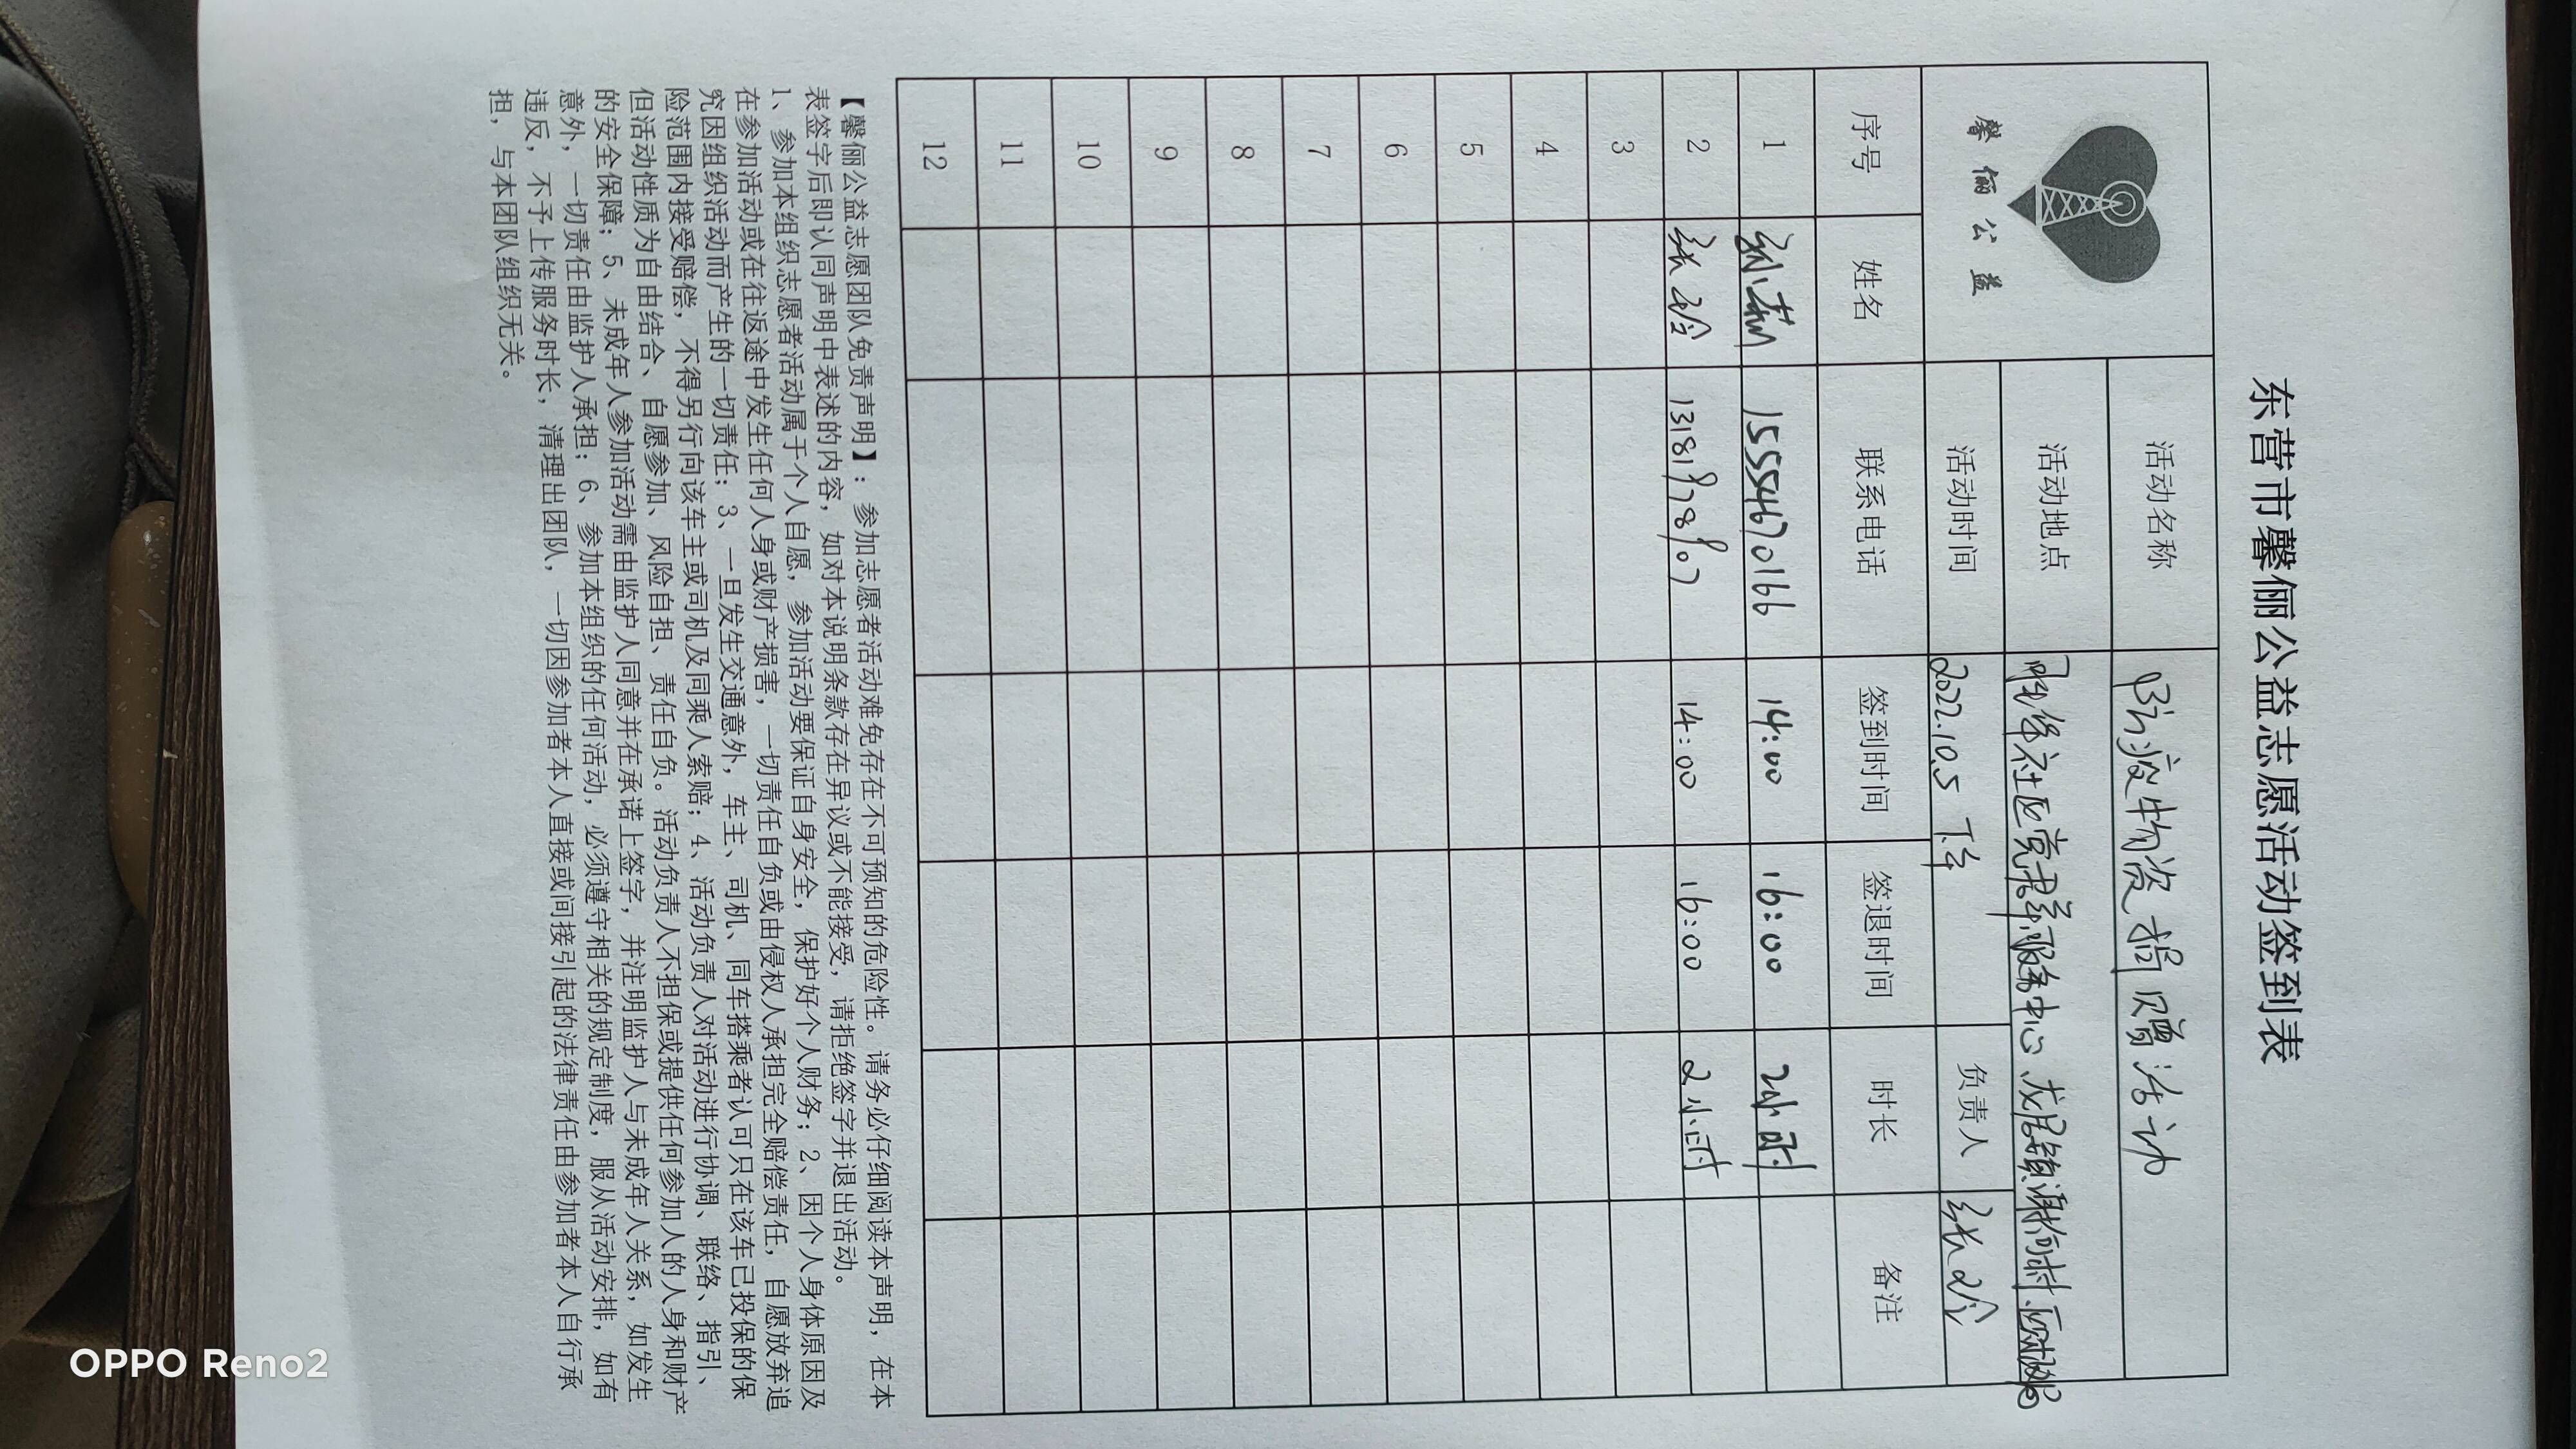 东营市馨俪公益志愿活动签到表
馨俪公益
活动名称 防疫物资捐赠活动
活动地点 社区党群服务中心、龙居镇
活动时间 2022.10.5 下午 负责人 张
序号 姓名 联系电话 签到时间 签退时间 时长 备注
1 15554670166 14:00 16:00 2小时
2 张 14:00 16:00 2小时
3
4
5
6
7
8
9
10
11
12
【馨俪公益志愿团队免责声明】：参加志愿者活动难免存在不可预知的危险性。请务必仔细阅读本声明，在本
表签字后即认同声明中表述的内容，如对本说明条款存在异议或不能接受，请拒绝签字并退出活动。
1、参加本组织志愿者活动属于个人自愿，参加活动要保证自身安全，保护好个人财务；2、因个人身体原因及
在参加活动或在往返途中发生任何人身或财产损害，一切责任自负或由侵权人承担完全赔偿责任，自愿放弃追
究因组织活动而产生的一切责任；3、一旦发生交通意外，车主、司机、同车搭乘者认可只在该车已投保的保
险范围内接受赔偿，不得另行向该车主或司机及同乘人索赔；4、活动负责人对活动进行协调、联络、指引、
但活动性质为自由结合、自愿参加、风险自担、责任自负。活动负责人不担保或提供任何参加人的人身和财产
的安全保障；5、未成年人参加活动需由监护人同意并在承诺上签字，并注明监护人与未成年人关系，如发生
意外，一切责任由监护人承担；6、参加本组织的任何活动，必须遵守相关的规定制度，服从活动安排，如有
违反，不予上传服务时长，清理出团队，一切因参加者本人直接或间接引起的法律责任由参加者本人自行承
担，与本团队组织无关。
OPPO Reno2